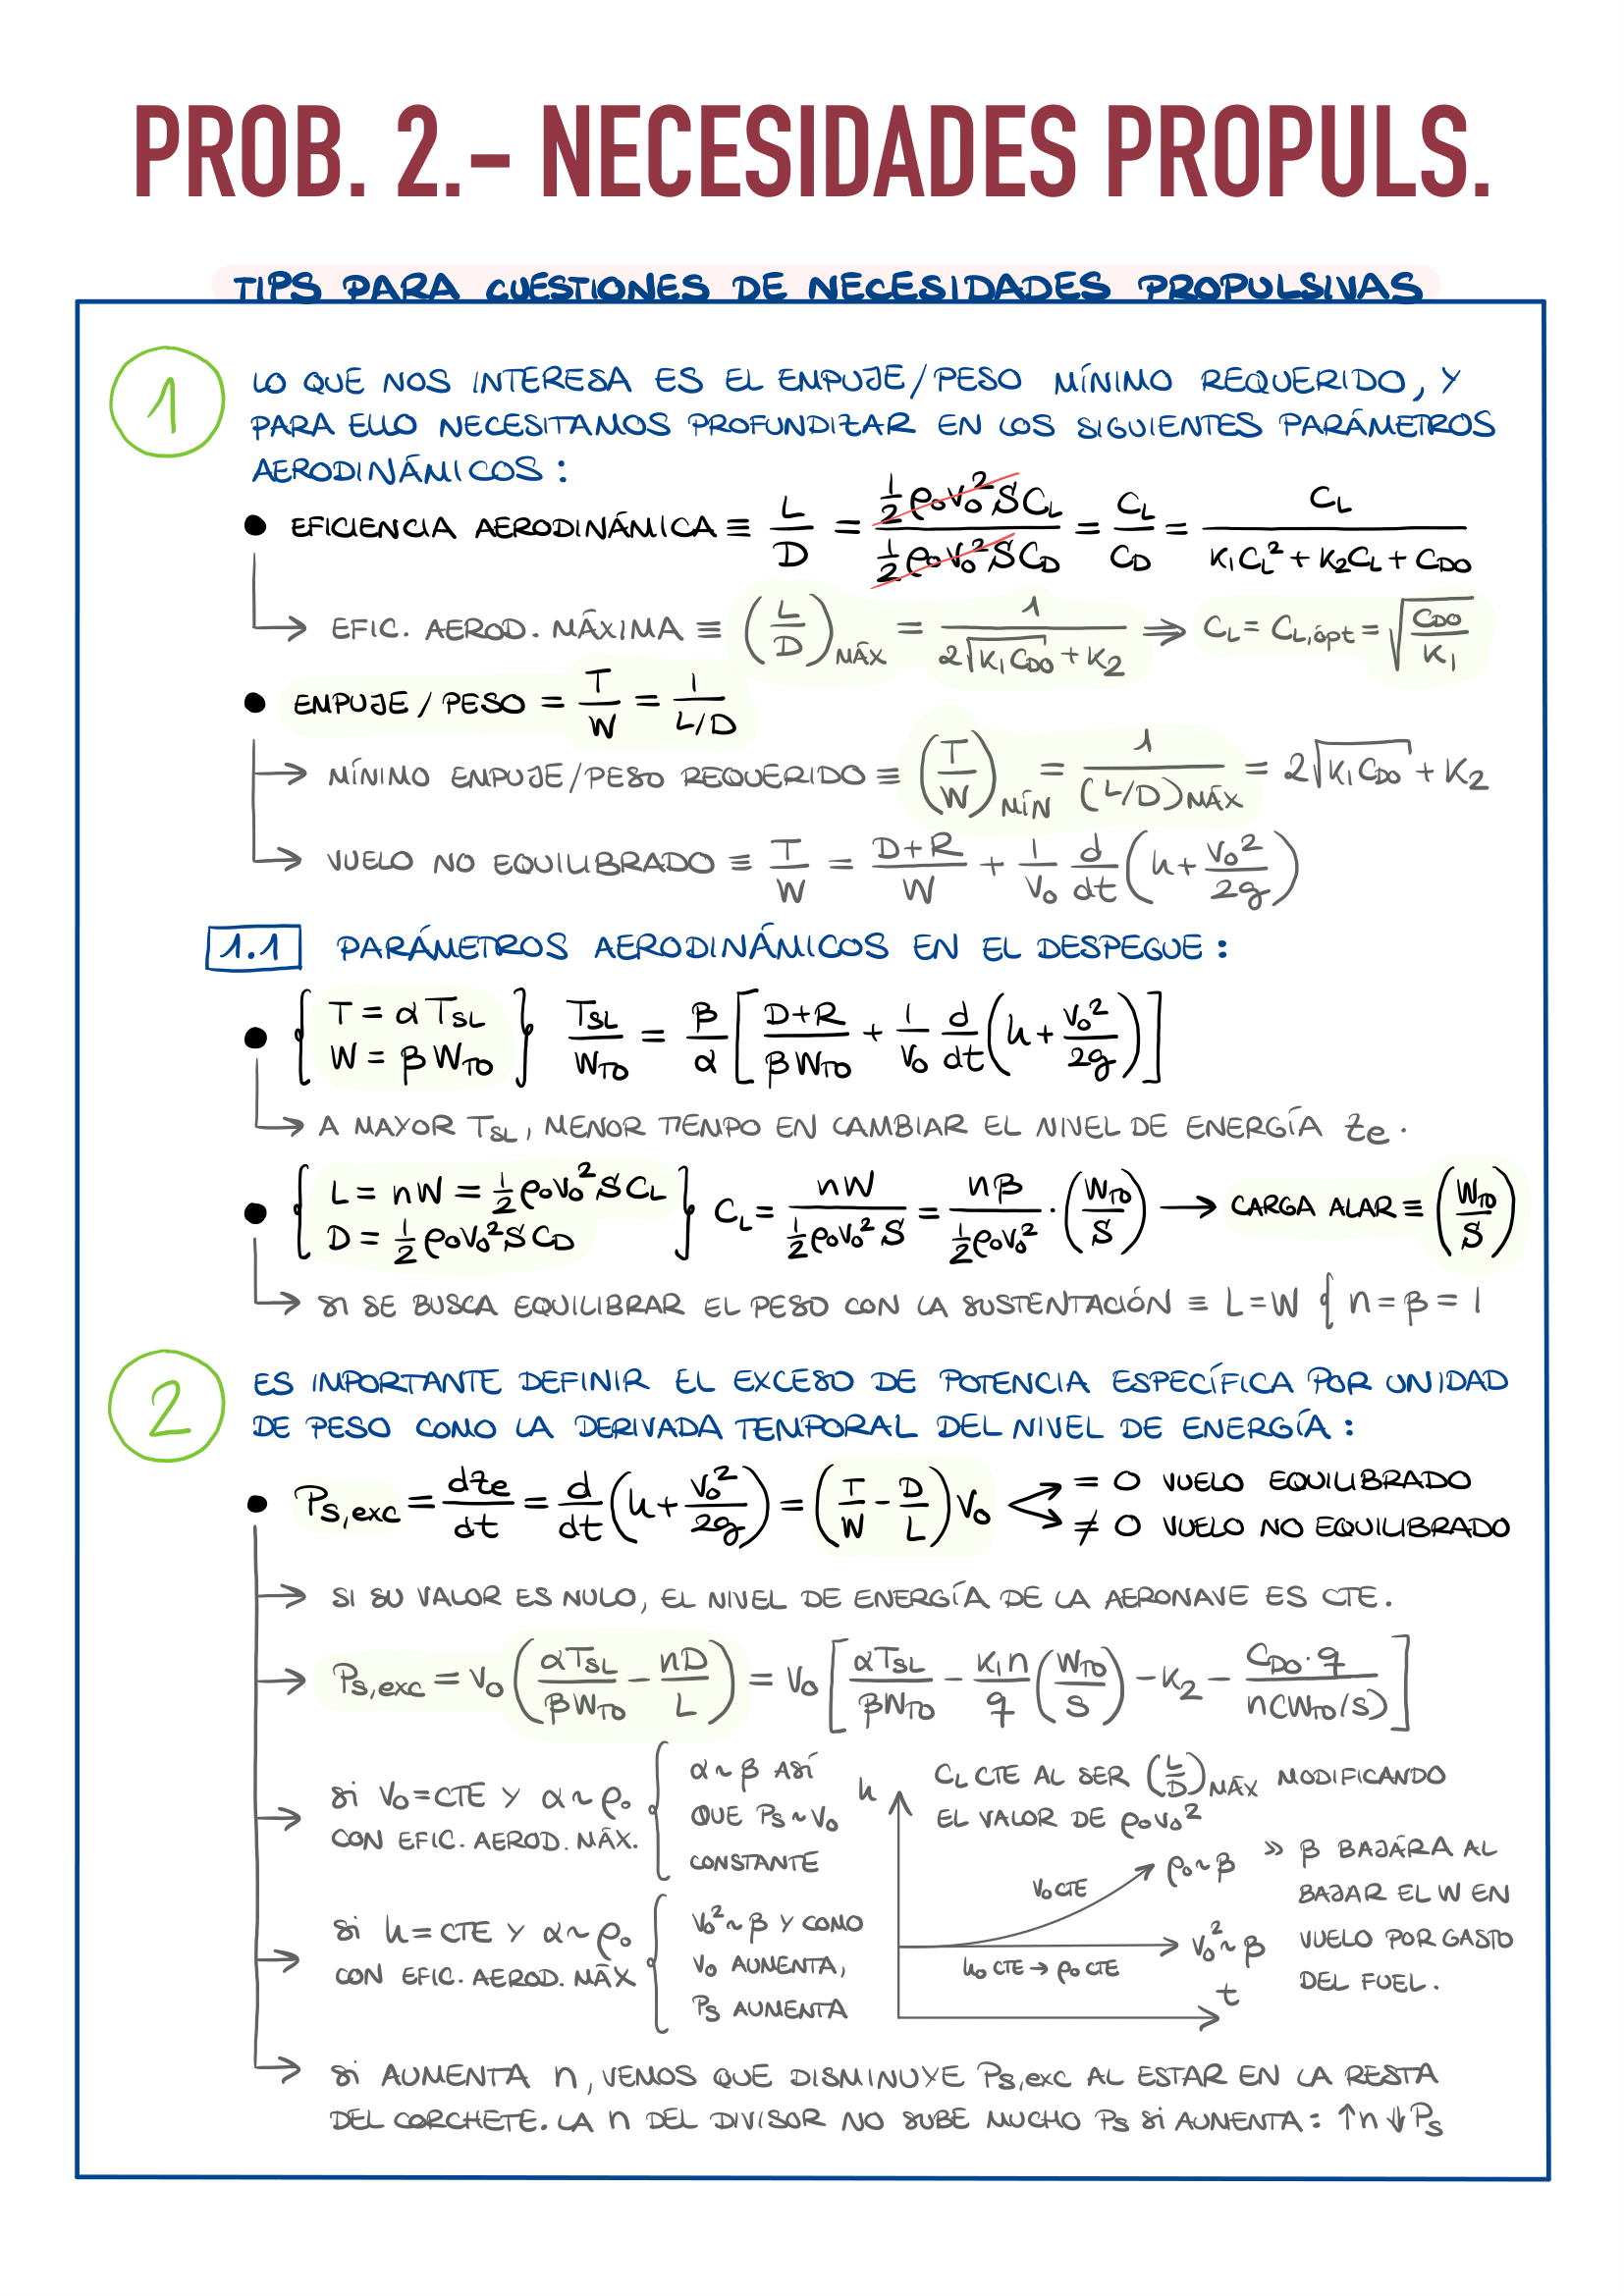 PROB. 2.- NECESIDADES PROPULS.
TIPS PARA CUESTIONES DE NECESIDADES PROPULSIVAS
1
LO QUE NOS INTERESA ES EL EMPUJE/PESO MÍNIMO REQUERIDO, Y
PARA ELLO NECESITAMOS PROFUNDIZAR EN LOS SIGUIENTES PARÁMETROS
AERODINÁMICOS:
• EFICIENCIA AERODINÁMICA ≡ L/D = (½ρ₀V₀²SC_L)/(½ρ₀V₀²SC_D) = C_L/C_D = C_L/(K₁C_L² + K₂C_L + C_D0)
→ EFIC. AEROD. MÁXIMA ≡ (L/D)_MÁX = 1/(2√(K₁C_D0) + K₂) ⇒ C_L = C_L,ópt = √(C_D0/K₁)
• EMPUJE/PESO = T/W = 1/(L/D)
→ MÍNIMO EMPUJE/PESO REQUERIDO ≡ (T/W)_MÍN = 1/(L/D)_MÁX = 2√(K₁C_D0) + K₂
→ VUELO NO EQUILIBRADO ≡ T/W = (D+R)/W + 1/V₀ d/dt (h + V₀²/2g)
1.1 PARÁMETROS AERODINÁMICOS EN EL DESPEGUE:
• { T = α T_SL
W = β W_TO } T_SL/W_TO = β/α [ (D+R)/(β W_TO) + 1/V₀ d/dt (h + V₀²/2g) ]
→ A MAYOR T_SL, MENOR TIEMPO EN CAMBIAR EL NIVEL DE ENERGÍA z_e.
• { L = nW = ½ρ₀V₀²SC_L
D = ½ρ₀V₀²SC_D } C_L = nW/(½ρ₀V₀²S) = nβ/(½ρ₀V₀²) · (W_TO/S) → CARGA ALAR ≡ (W_TO/S)
→ SI SE BUSCA EQUILIBRAR EL PESO CON LA SUSTENTACIÓN ≡ L=W { n = β = 1
2
ES IMPORTANTE DEFINIR EL EXCESO DE POTENCIA ESPECÍFICA POR UNIDAD
DE PESO COMO LA DERIVADA TEMPORAL DEL NIVEL DE ENERGÍA:
• P_s,exc = dz_e/dt = d/dt (h + V₀²/2g) = (T/W − D/L) V₀
= 0 VUELO EQUILIBRADO
≠ 0 VUELO NO EQUILIBRADO
→ SI SU VALOR ES NULO, EL NIVEL DE ENERGÍA DE LA AERONAVE ES CTE.
→ P_s,exc = V₀ (αT_SL/βW_TO − nD/L) = V₀ [ αT_SL/βW_TO − K₁n/q (W_TO/S) − K₂ − C_D0·q/(n(W_TO/S)) ]
→ Si V₀=CTE Y α∼ρ₀
CON EFIC. AEROD. MÁX.
{ α∼β ASÍ
QUE P_s∼V₀
CONSTANTE
→ Si h=CTE Y α∼ρ₀
CON EFIC. AEROD. MÁX
{ V₀²∼β Y COMO
V₀ AUMENTA,
P_s AUMENTA
h
C_L CTE AL SER (L/D)_MÁX MODIFICANDO
EL VALOR DE ρ₀V₀²
V₀ CTE
ρ₀∼β
h₀ CTE → ρ₀ CTE
V₀²∼β
t
» β BAJÁRA AL
BAJAR EL W EN
VUELO POR GASTO
DEL FUEL.
→ Si AUMENTA n, VEMOS QUE DISMINUYE P_s,exc AL ESTAR EN LA RESTA
DEL CORCHETE. LA n DEL DIVISOR NO SUBE MUCHO P_s Si AUMENTA: ↑n ↓P_s